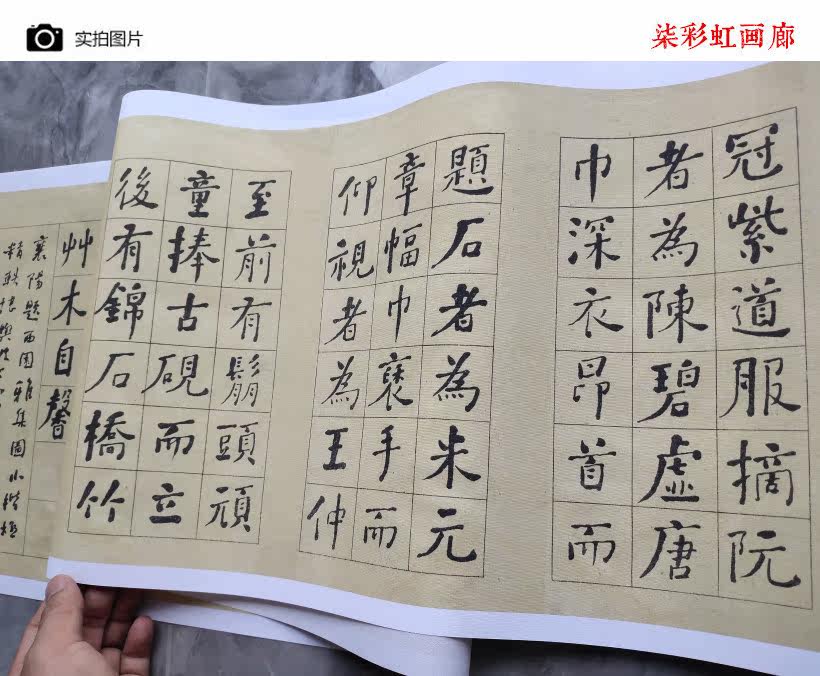 实拍图片
柒彩虹画廊
冠紫道服摘阮
者為陳碧虛唐
巾深衣昂首而
題石者為米元
章幅巾褎手而
仰視者為王仲
至前有鬅頭頑
童捧古硯而立
後有錦石橋竹
艸木自馨
襄陽題西園雅集圖小楷極
精